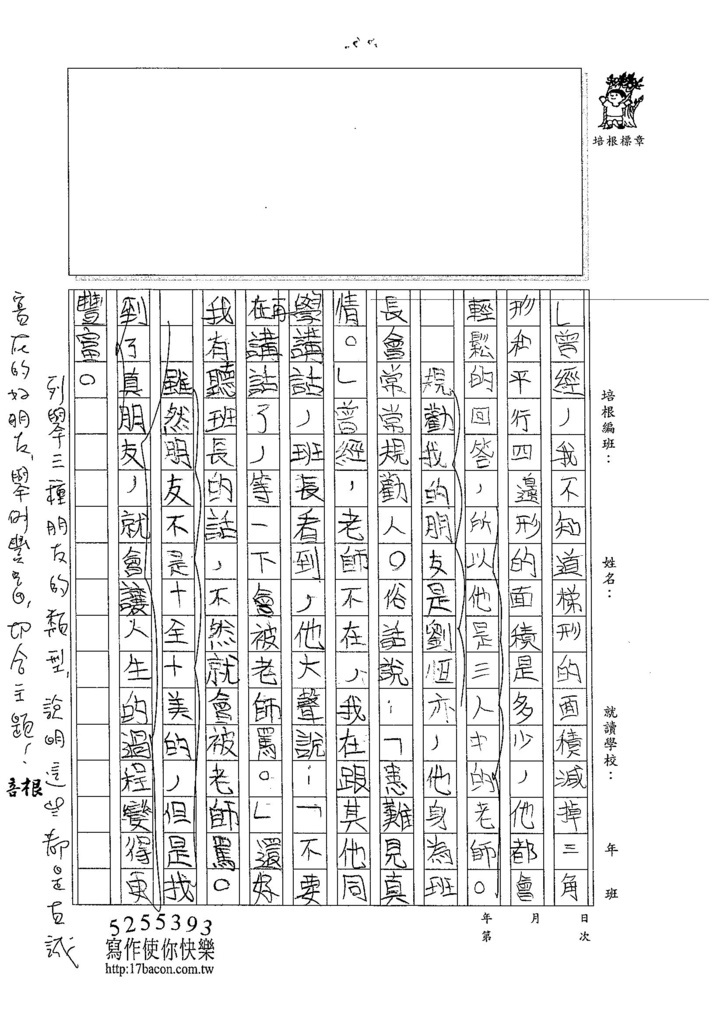 培根標章
培根編班：　姓名：　就讀學校：　年　班
年　月　日
第　次
」曾經，我不知道梯形的面積減掉三角
形和平行四邊形的面積是多少，他都會
輕鬆的回答，所以他是三人中的老師。
規勸我的朋友是劉恆亦，他身為班
長會常常規勸人。俗話說：「患難見真
情。」曾經，老師不在，我在跟其他同
學講話，班長看到，他大聲說：「不要
在再講話了，等一下會被老師罵。」還好
我有聽班長的話，不然就會被老師罵。
雖然朋友不是十全十美的，但是我
到了真朋友，就會讓人生的過程變得更
豐富。
列舉三種朋友的類型，說明這些都是友誠
的好朋友，舉例豐富，切合主題！
培根
5255393
寫作使你快樂
http:17bacon.com.tw